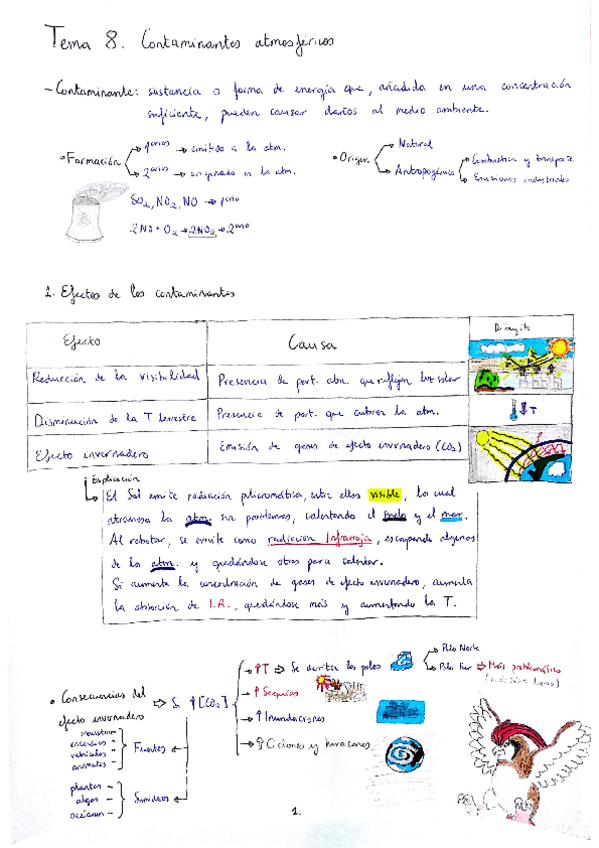 Tema 8. Contaminantes atmosféricos
- Contaminante: sustancia o forma de energía que, añadida en una concentración
suficiente, pueden causar daños al medio ambiente.
• Formación
1arios → emitido a la atm.
2arios → originado en la atm.
SO2, NO2, NO → 1ario
2NO + O2 → 2NO2 → 2ario
• Origen
Natural
Antropogénico
Combustión y transporte
Emisiones industriales
1. Efectos de los contaminantes
Efecto Causa Dibujito
Reducción de la visibilidad Presencia de part. atm. que reflejan luz solar
Disminución de la T terrestre Presencia de part. que cubren la atm. ↓T
Efecto invernadero Emisión de gases de efecto invernadero (CO2)
Explicación
El Sol emite radiación policromática, entre ellas visible, la cual
atraviesa la atm. sin problemas, calentando el suelo y el mar.
Al rebotar, se emite como radiación Infrarroja, escapando algunos
de la atm. y quedándose otros para calentar.
Si aumenta la concentración de gases de efecto invernadero, aumenta
la absorción de I.R., quedándose más y aumentando la T.
• Consecuencias del
efecto invernadero ⇒ Si ↑[CO2]
→ ↑T ⇒ Se derriten los polos
Polo Norte
Polo Sur ⇒ Más problemático
→ ↑ Sequías
→ ↑ Inundaciones
→ ↑ Ciclones y huracanes
nosotros -
incendios -
vehículos -
animales -
Fuentes
plantas -
algas -
océanos -
Sumideros
1.